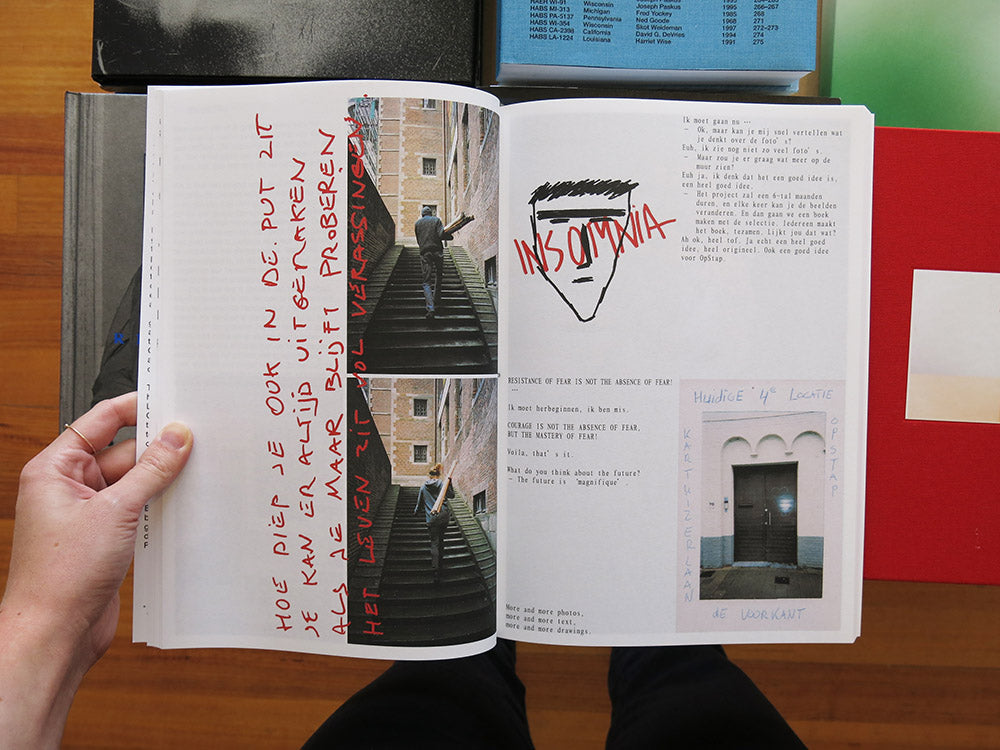 HAER WI-91 Wisconsin Joseph Paskus 1995
HABS MI-313 Michigan Joseph Paskus 1995 266–267
HABS PA-5137 Pennsylvania Fred Yockey 1985 268
HABS WI-354 Wisconsin Ned Goode 1968 271
HABS CA-2398 California Skot Weideman 1997 272–273
HABS LA-1224 Louisiana David G. DeVries 1994 274
Harriet Wise 1991 275
HOE DIEP JE OOK IN DE PUT ZIT
JE KAN ER ALTIJD UITGERAKEN
ALS JE MAAR BLIJFT PROBEREN
HET LEVEN ZIT VOL VERASSINGEN.
INSOMNIA
Ik moet gaan nu …
- Ok, maar kan je mij snel vertellen wat
je denkt over de foto's?
Euh, ik zie nog niet zo veel foto's.
- Maar zou je er graag wat meer op de
muur zien?
Euh ja, ik denk dat het een goed idee is,
een heel goed idee.
- Het project zal een 6-tal maanden
duren, en elke keer kan je de beelden
veranderen. En dan gaan we een boek
maken met de selectie. Iedereen maakt
het boek, tezamen. Lijkt jou dat wat?
Ah ok, heel tof. Ja echt een heel goed
idee, heel origineel. Ook een goed idee
voor OpStap.
RESISTANCE OF FEAR IS NOT THE ABSENCE OF FEAR!
…
Ik moet herbeginnen, ik ben mis.
COURAGE IS NOT THE ABSENCE OF FEAR,
BUT THE MASTERY OF FEAR!
Voila, that's it.
What do you think about the future?
- The future is 'magnifique'.
More and more photos,
more and more text,
more and more drawings.
HUIDIGE 4e LOCATIE
OPSTAP
KARTUIZERLAAN
de VOORKANT